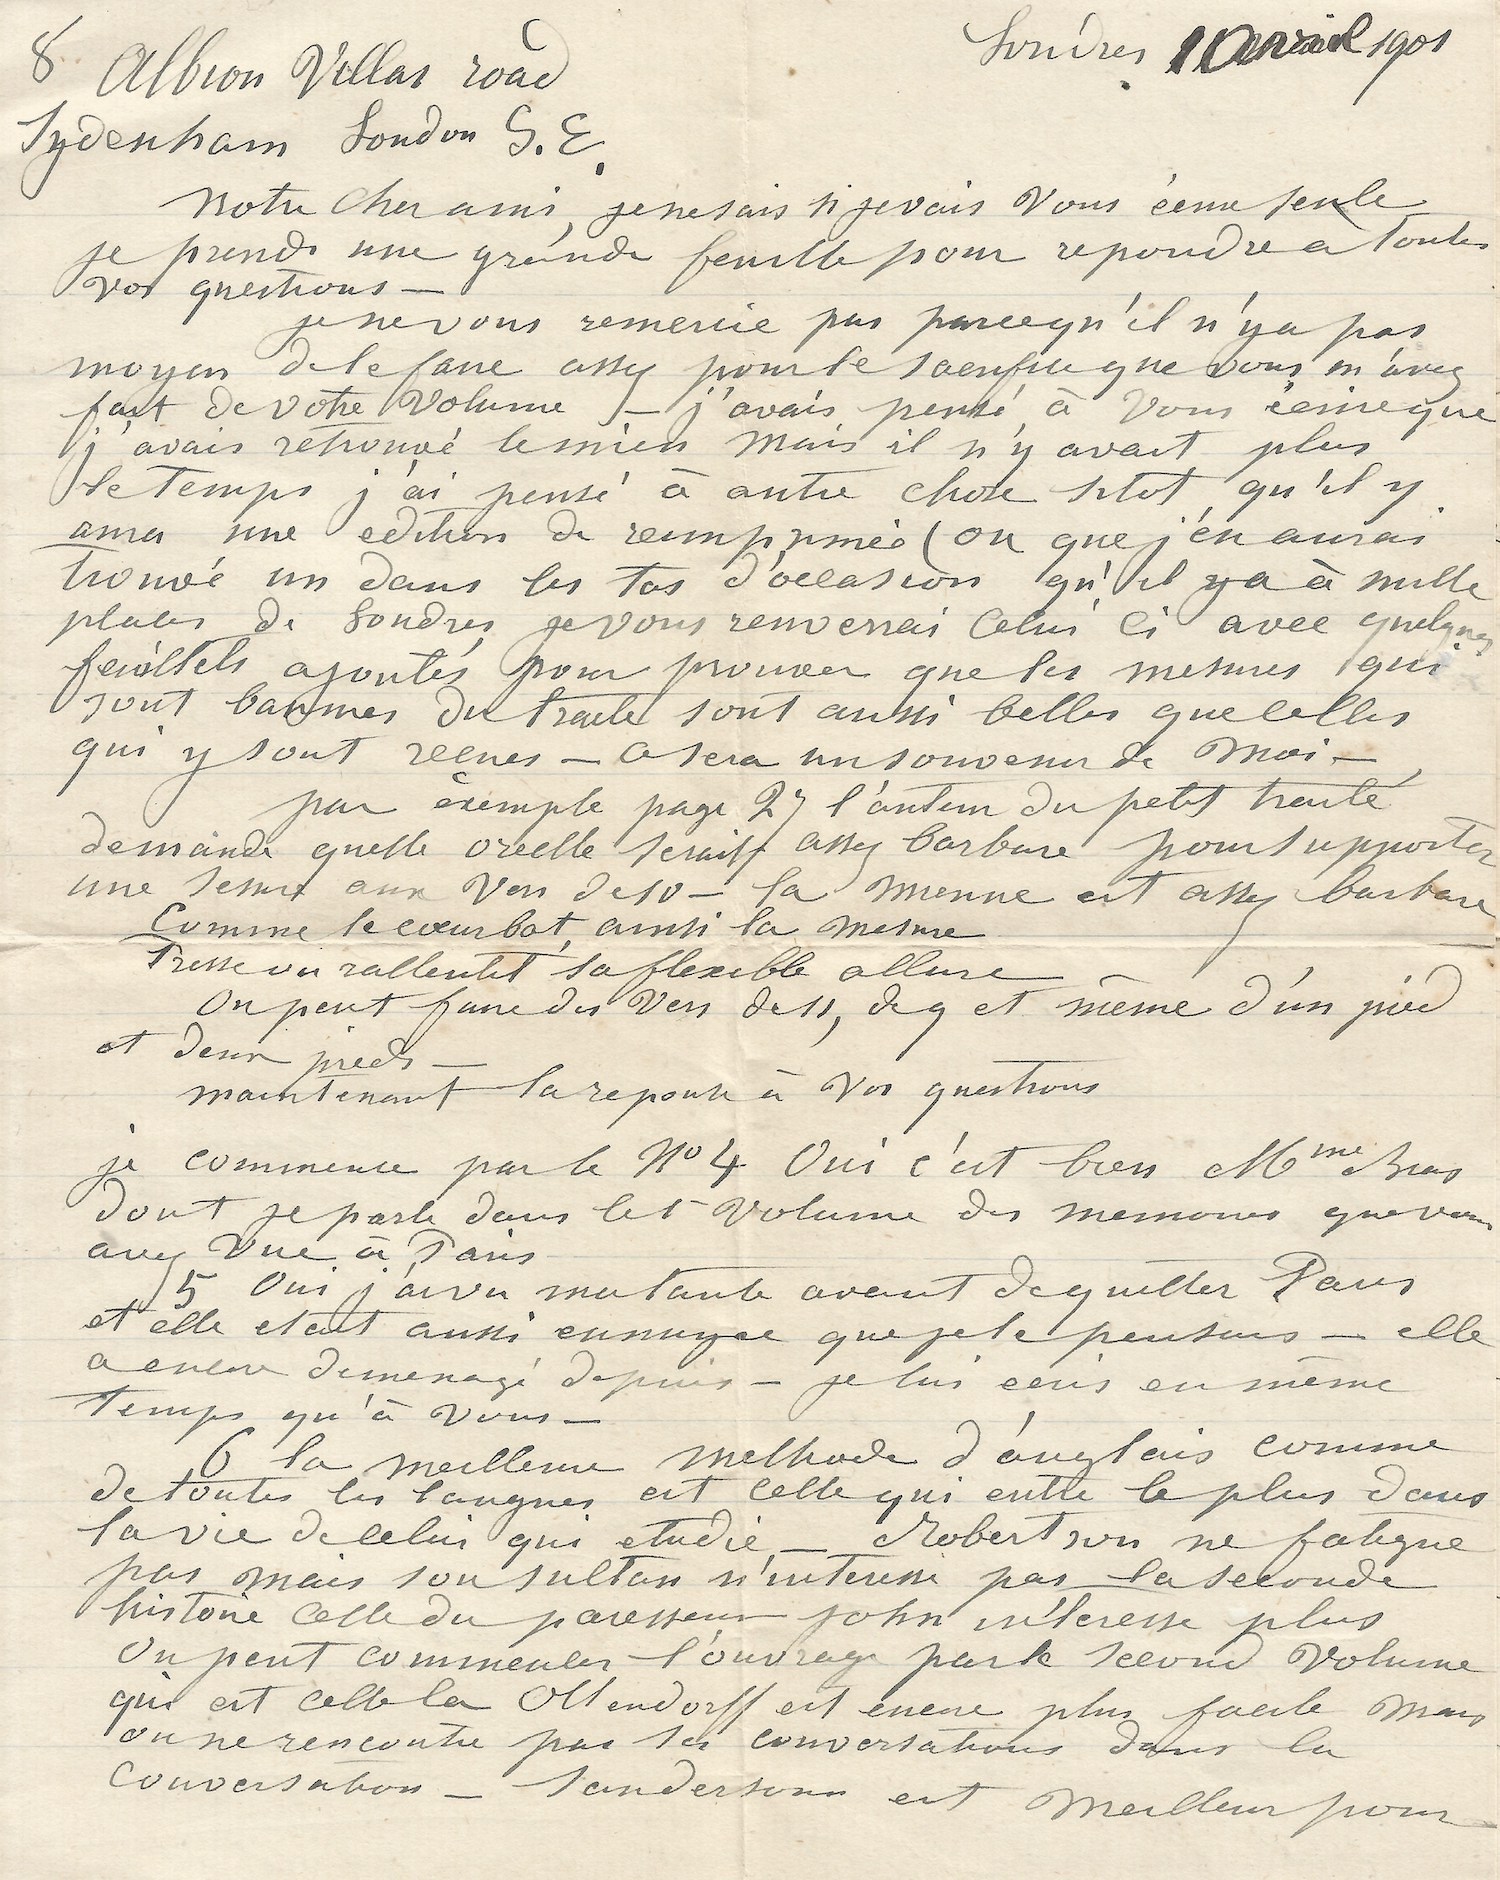 8 Albion Villas road
Londres 10 avril 1901
Sydenham London S.E.
Notre cher ami, je ne sais si je vais vous écrire seule
je prends une grande feuille pour repondre à toutes
vos questions —
je ne vous remercie pas parcequ'il n'y a pas
moyen de le faire assez pour le sacrifice que vous m'avez
fait de votre volume — j'avais pensé à vous écrire que
j'avais retrouvé le mien mais il n'y avait plus
le temps j'ai pensé à autre chose sitot qu'il y
aura une edition de reimprimée (ou que j'en aurai
trouvé un dans les tas d'occasion qu'il y a à mille
places de Londres je vous renverrai celui ci avec quelques
feuillets ajoutés pour prouver que les mesures qui
sont bannies du traité sont aussi belles que celles
qui y sont reçues — ce sera un souvenir de moi —
par exemple page 27 l'auteur du petit traité
demande quelle oreille serait assez barbare pour supporter
une mesure aux vers de 10 — la mienne est assez barbare
Comme le cœur bat, ainsi la mesure
Presse ou rallentit sa flexible allure
On peut faire des vers de 11, de 9 et même d'un pied
et deux pieds —
maintenant la reponse à vos questions
je commence par le No 4 Oui c'est bien Mme
dont je parle dans le 1 volume des memoires que vous
avez vue à Paris
5 Oui j'ai vu ma tante avant de quitter Paris
et elle etait aussi ennuyee que je le pensais — elle
a encore demenagé depuis — je lui ecris en même
temps qu'à vous —
6 la meilleure methode d'anglais comme
de toutes les langues est celle qui entre le plus dans
la vie de celui qui etudie — Robertson ne fatigue
pas mais son sultan n'interesse pas la seconde
histoire celle du paresseux John interesse plus
on peut commencer l'ouvrage par le second volume
qui est celle la Ollendorff est encore plus facile mais
on ne rencontre pas ses conversations dans la
conversation — Sanderson est meilleur pour